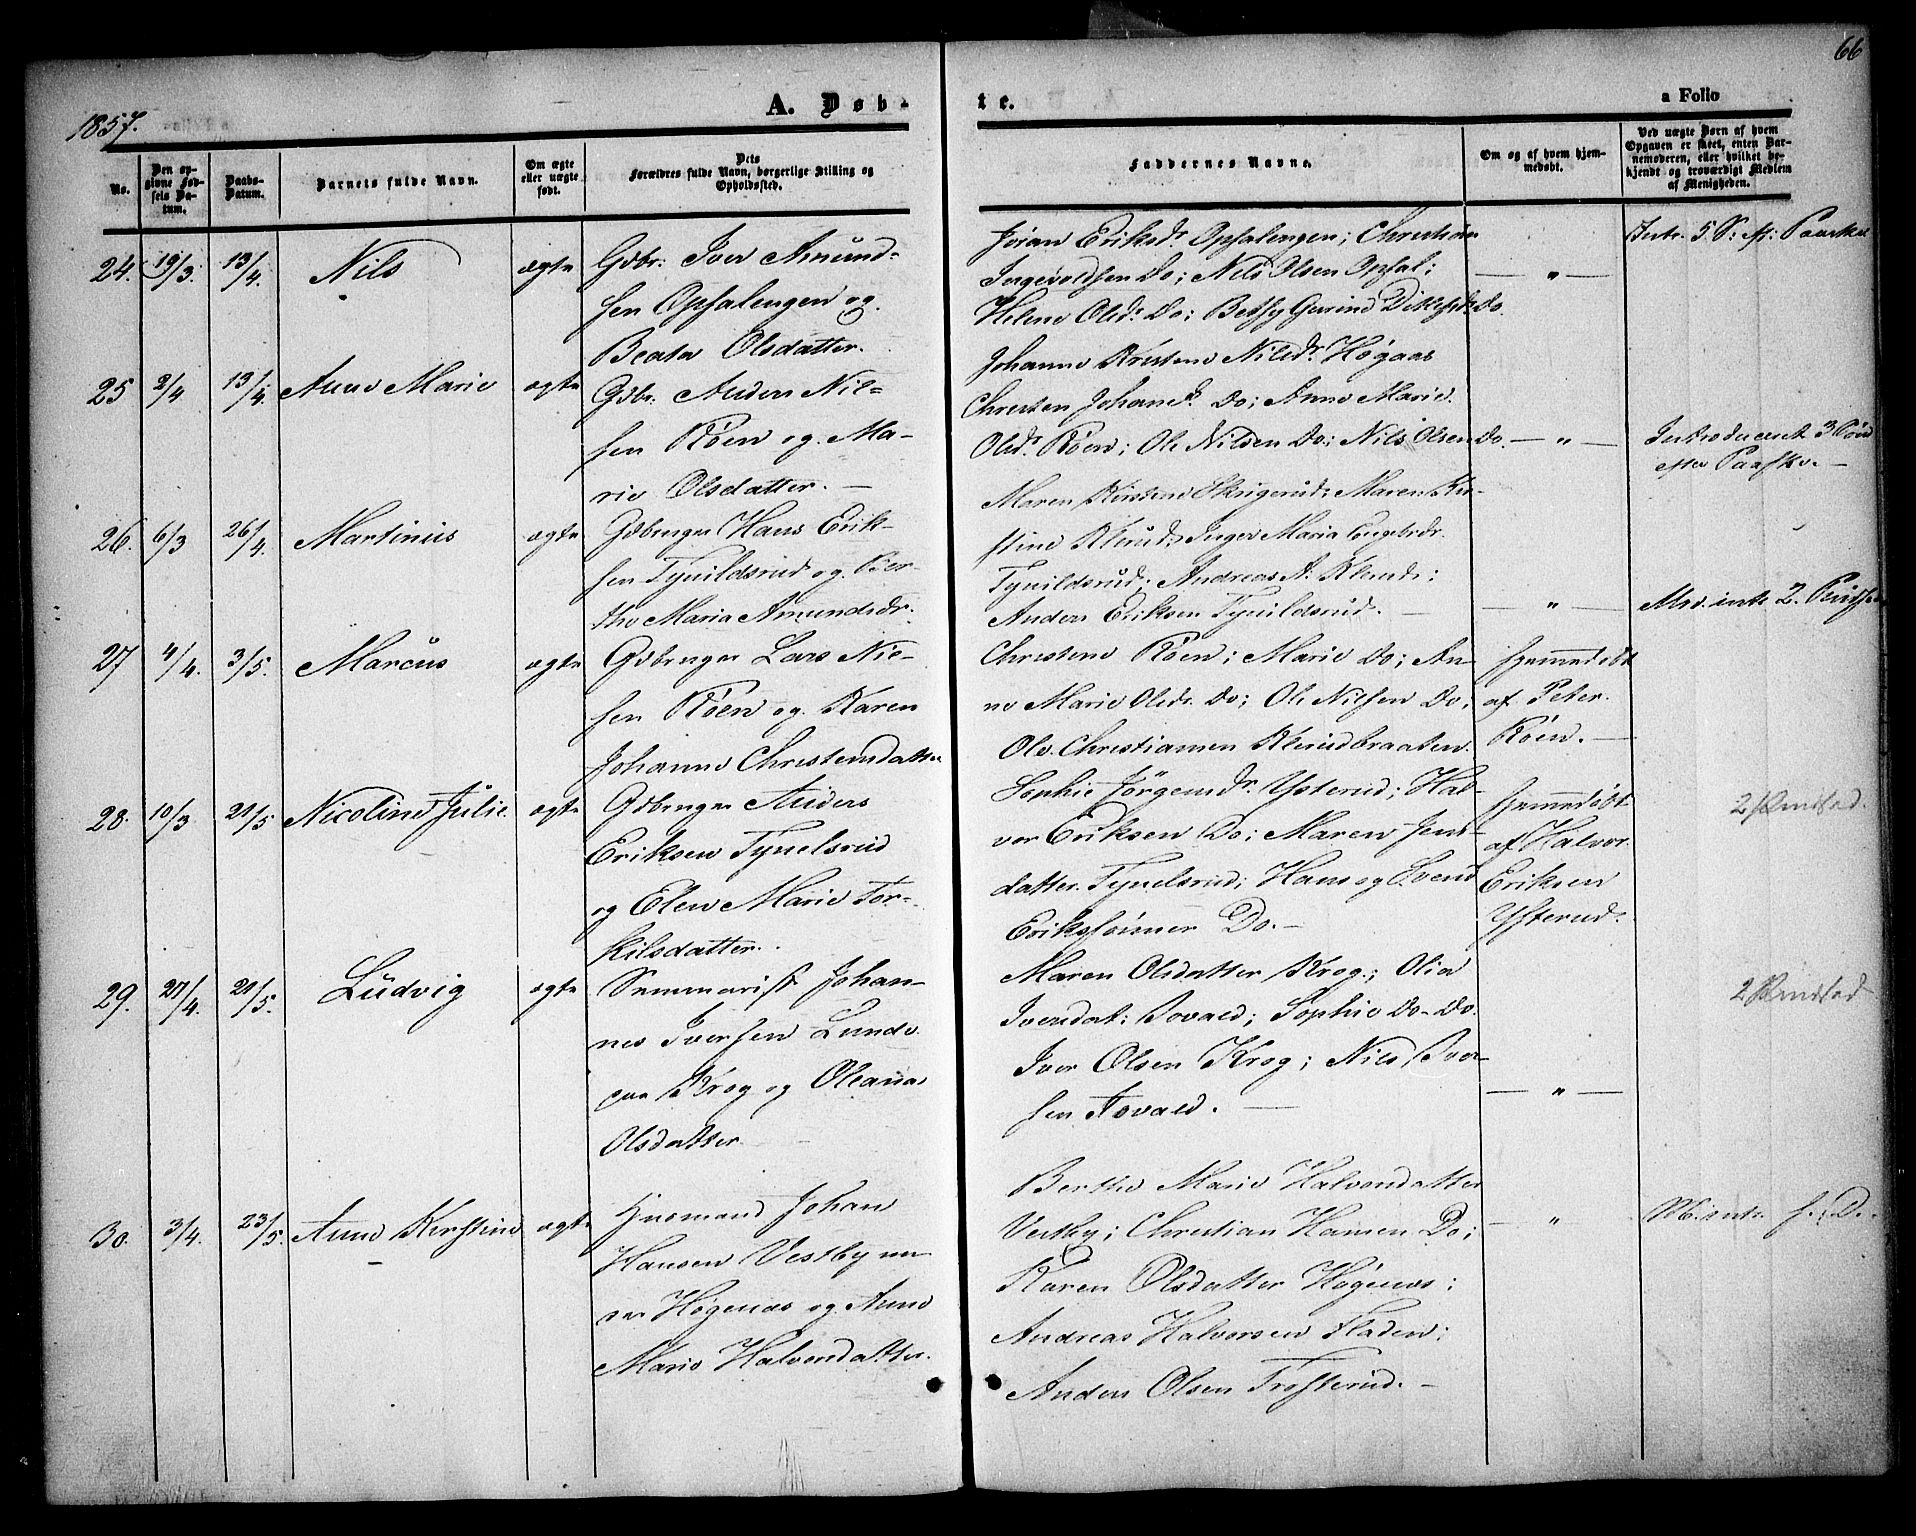 66
1857.
A. Døbte.
a Folio
No.
Den opgivne Fødsels Datum.
Daabs-Datum.
Barnets fulde Navn.
Om ægte eller uægte født.
Dets Forældres fulde Navn, borgerlige Stilling og Opholdssted.
Faddernes Navne.
Om og af hvem hjemmedøbt.
Ved uægte Børn af hvem Opgaven er skeet, enten Barnemoderen, eller hvilket bekjendt og troværdigt Medlem af Menigheden.
24. 19/3. 13/4. Nils ægte Gdbr. Iver Amund-
sen Opsalengen og
Beata Olsdatter.
Jøran Eriksdr. Opsalengen; Christian
Ingevoldsen Do; Nils Olsen Opsal;
Helene Olsdr. Do; Betsy Gurine Do.
— " —
Intr. 5 S. ef. Paaske
25 2/4 13/4. Anne Marie ægte Gdbr. Anders Nil-
sen Røen og Ma-
rie Olsdatter. —
Johanne Kirstene Nilsdr. Høgaas
Christen Johansd. Do; Anne Marie
Olsdr. Røen; Ole Nilsen Do; Nils Olsen Do.
— " —
Introduceret 3 Sønd
efter Paaske. —
26. 6/3 26/4. Martinius ægte Gdbruger Hans Erik-
sen Tynildsrud og Ber-
the Maria Amundsdr.
Maren Kirstine Skigerud; Maren Kir-
stine Klerud; Inger Maria Engebrdr.
Tynildsrud; Andreas A. Klerud;
Anders Eriksen Tynildsrud. —
— " —
Mod. intr. 2. Pindsed
27 4/4. 3/5. Marcus ægte Gdbruger Lars Nil-
sen Røen og Karen
Johanne Christensdatter
Christene Røen; Marie Do; An-
ne Marie Olsdr. Do; Ole Nilsen Do;
Ole Christiansen Klerudbraaten.
Hjemmedøbt
af Peter
Røen. —
28. 10/3 21/5. Nicoline Julie. ægte Gdbruger Anders
Eriksen Tynelsrud
og Elen Marie Tor-
kilsdatter.
Sophie Jørgensdr. Ysterud; Hal-
vor Eriksen Do; Maren Jens-
datter Tynelsrud; Hans og Svend
Erikssønner Do. —
Hjemmedøbt
af Halvor
Eriksen
Ysterud.
29. 27/4. 21/5. Ludvig ægte Seminarist Johan-
nes Iversen Lunde
paa Krog og Oleana
Olsdatter
Maren Olsdatter Krog; Olia
Iversdat. Tovald; Sophie Do. Do.
Iver Olsen Krog; Nils Iver-
sen Tovald. —
— " —
30. 3/4. 23/5. Anne Kirstine ægte Husmand Johan
Hansen Vestby un-
der Høgenæs og Anne
Marie Halvorsdatter.
Berthe Marie Halvorsdatter
Vestby; Christian Hansen Do;
Karen Olsdatter Høgenæs;
Andreas Halvorsen Fladen;
Anders Olsen Trosterud. —
— " —
M. intr. s. D.